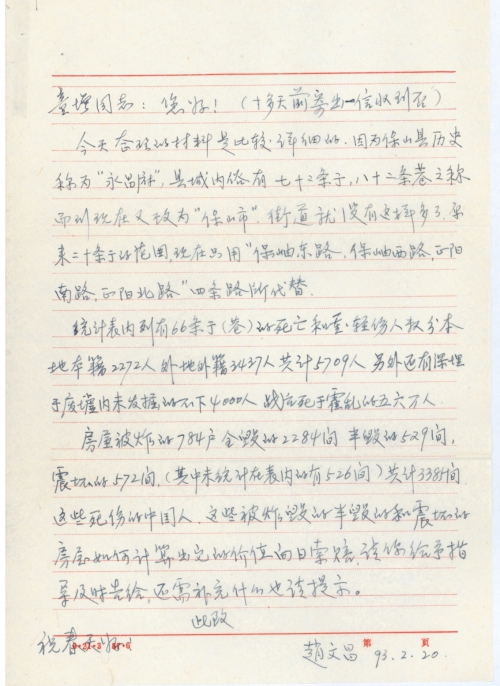 童增同志：您好！（十多天前寄出一信收到否）
今天寄的材料是比较详细的．因为保山县历史
称为"永昌府"，县城内俗有七十二条子，八十二条巷之称
而到现在又改为"保山市"．街道就没有这样多了．原
来二十条子的范围，现在只用"保岫东路．保岫西路，正阳
南路，正阳北路"四条路所代替．
统计表内列有66条子（巷）的死亡和重·轻伤人数分本
地本籍2272人外地外籍3437人共计5709人 另外还有深埋
于废墟内未发掘的不下4000人 战后死于霍乱的五六万人．
房屋被炸的784户全毁的2284间 半毁的529间，
震坏的572间．（其中未统计在表内的有526间）共计3385间
这些死伤的中国人．这些被炸毁的半毁的和震坏的
房屋如何计算出它的价值向日索赔，请你给予指
导及时告给，还需补充什么也请提示．
此致
祝春
赵文昌 93．2．20．
第 页